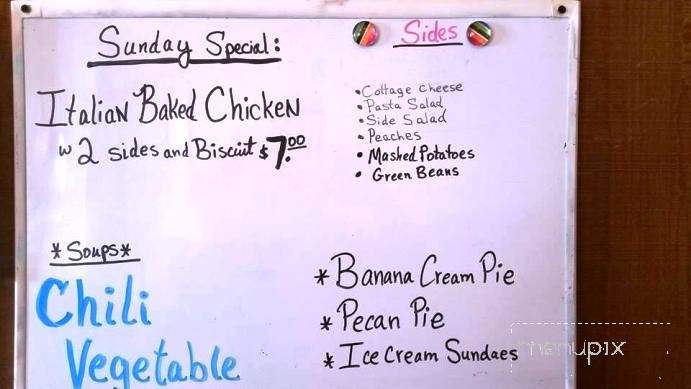 Sunday Special:
Italian Baked Chicken
w 2 sides and Biscuit $7.00
Sides
• Cottage cheese
• Pasta Salad
• Side Salad
• Peaches
• Mashed Potatoes
• Green Beans
*Soups*
Chili
Vegetable
* Banana Cream Pie
* Pecan Pie
* Ice Cream Sundaes
menupix